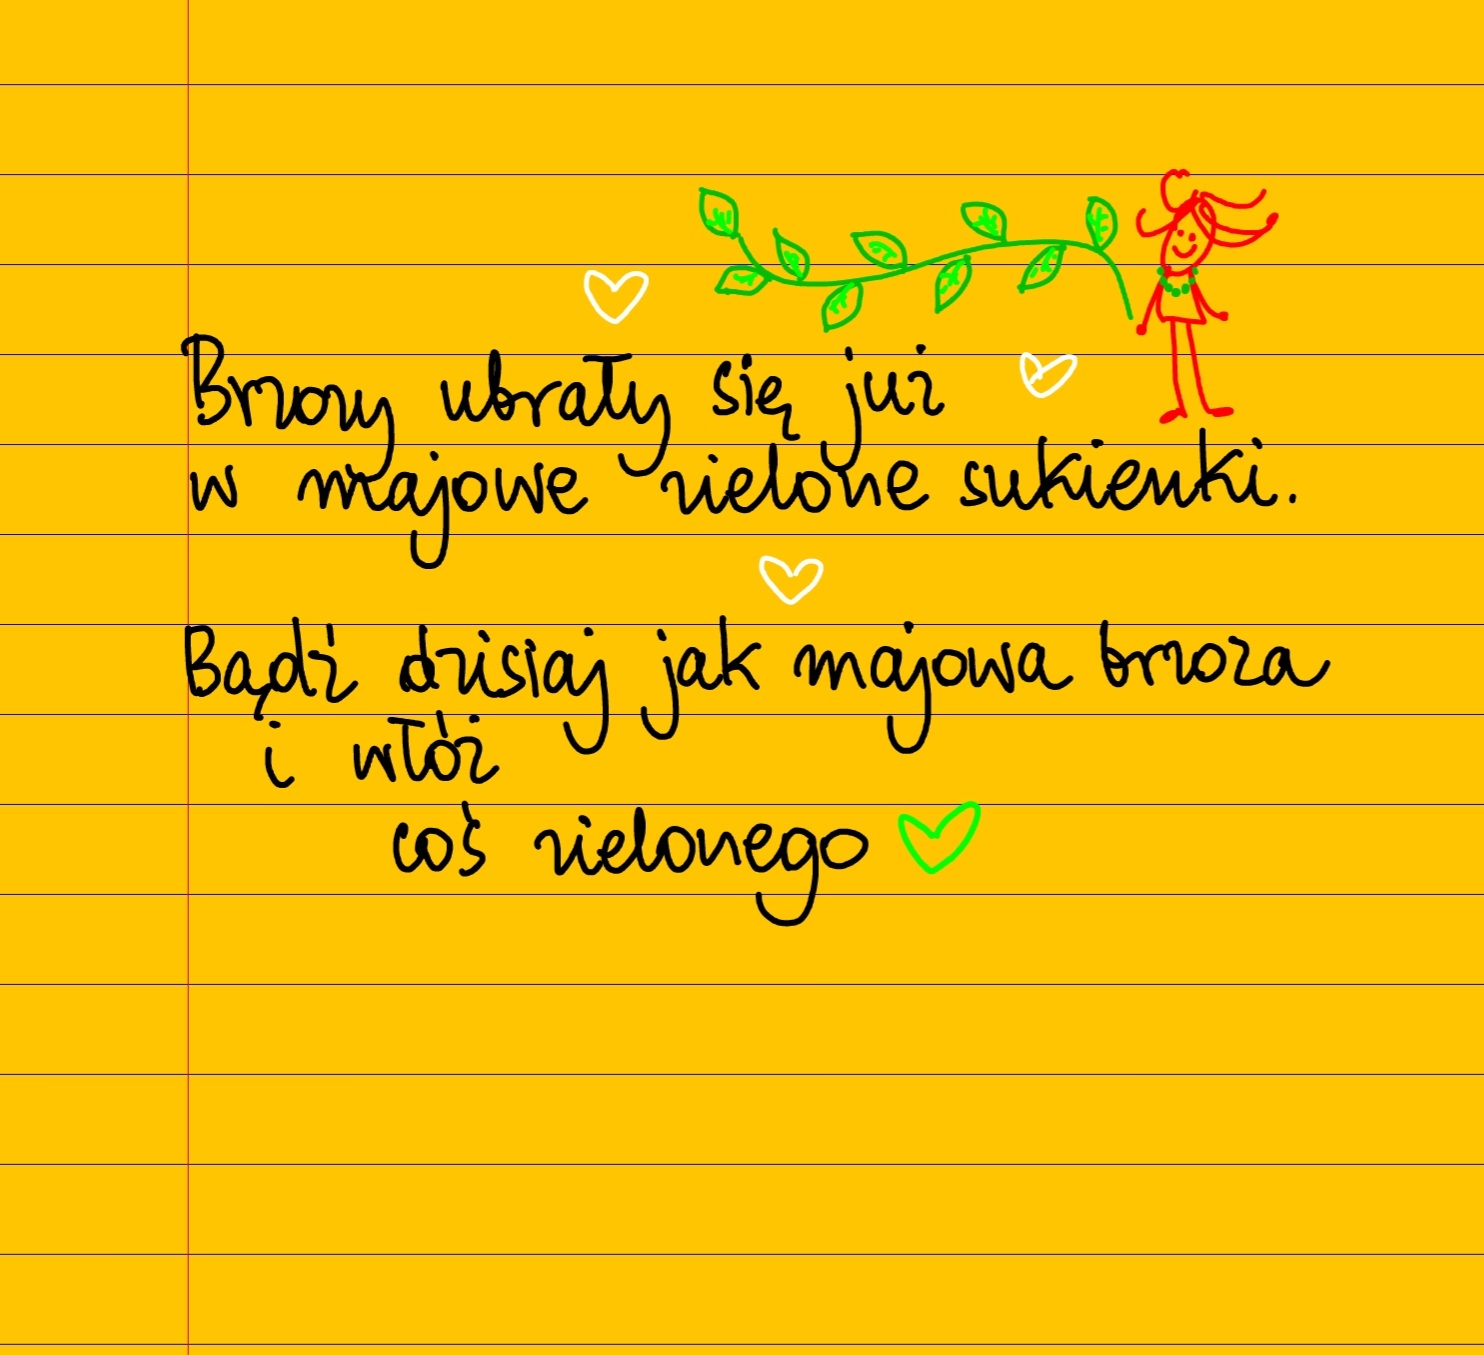 Brzozy ubrały się już
w majowe zielone sukienki.
Bądź dzisiaj jak majowa brzoza
i włóż
coś zielonego